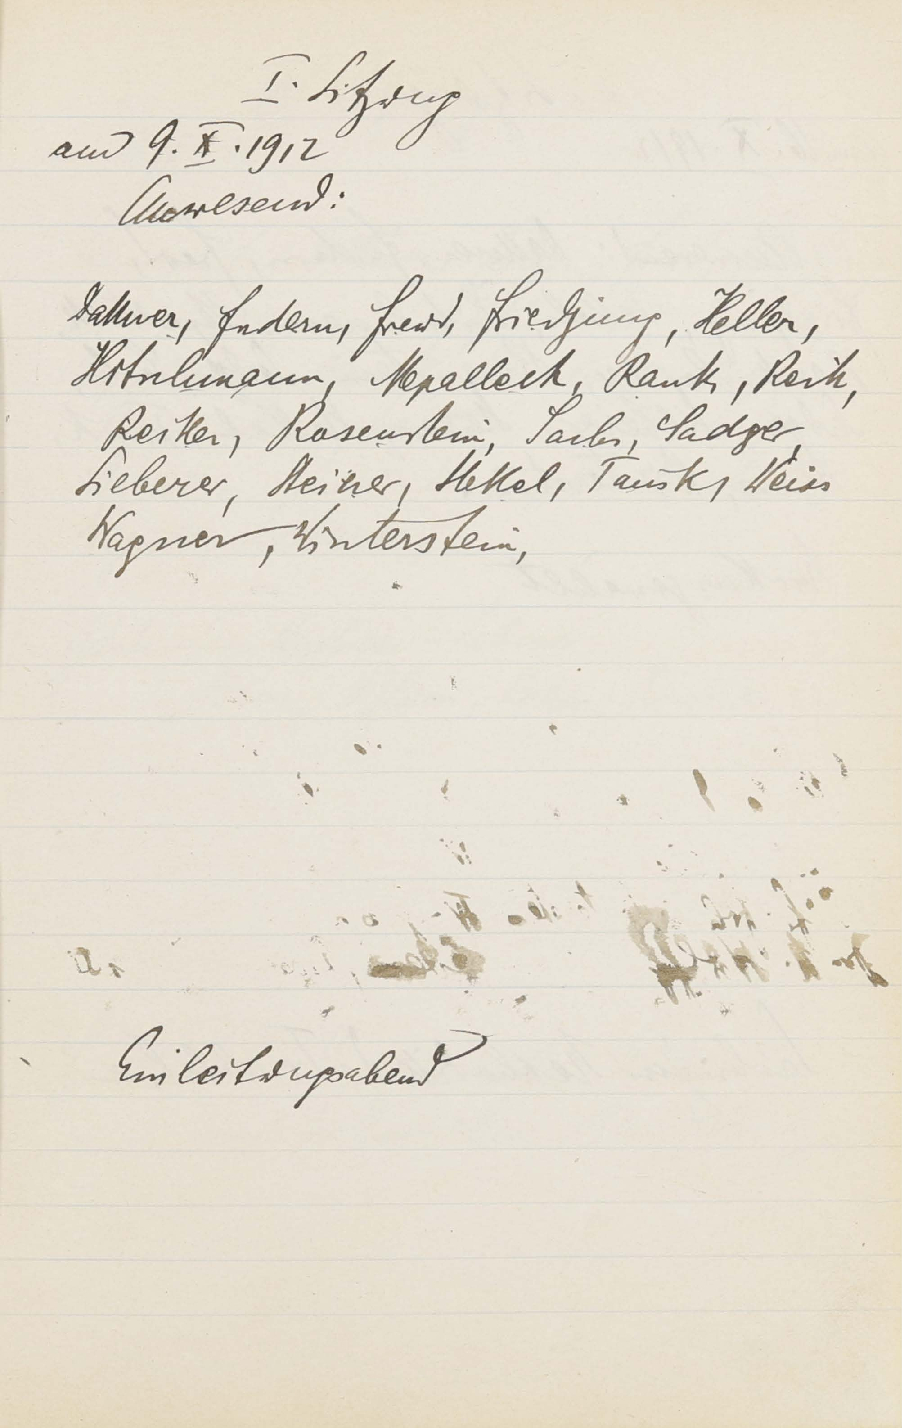 I. Sitzung
am 9. X. 1912
Anwesend:
Dattner, Federn, Freud, Friedjung, Heller,
Hitschmann, Nepalleck, Rank, Reik,
Reitler, Rosenstein, Sachs, Sadger,
Silberer, Steiner, Stekel, Tausk, Weiss
Wagner, Winterstein,
Einleitungsabend